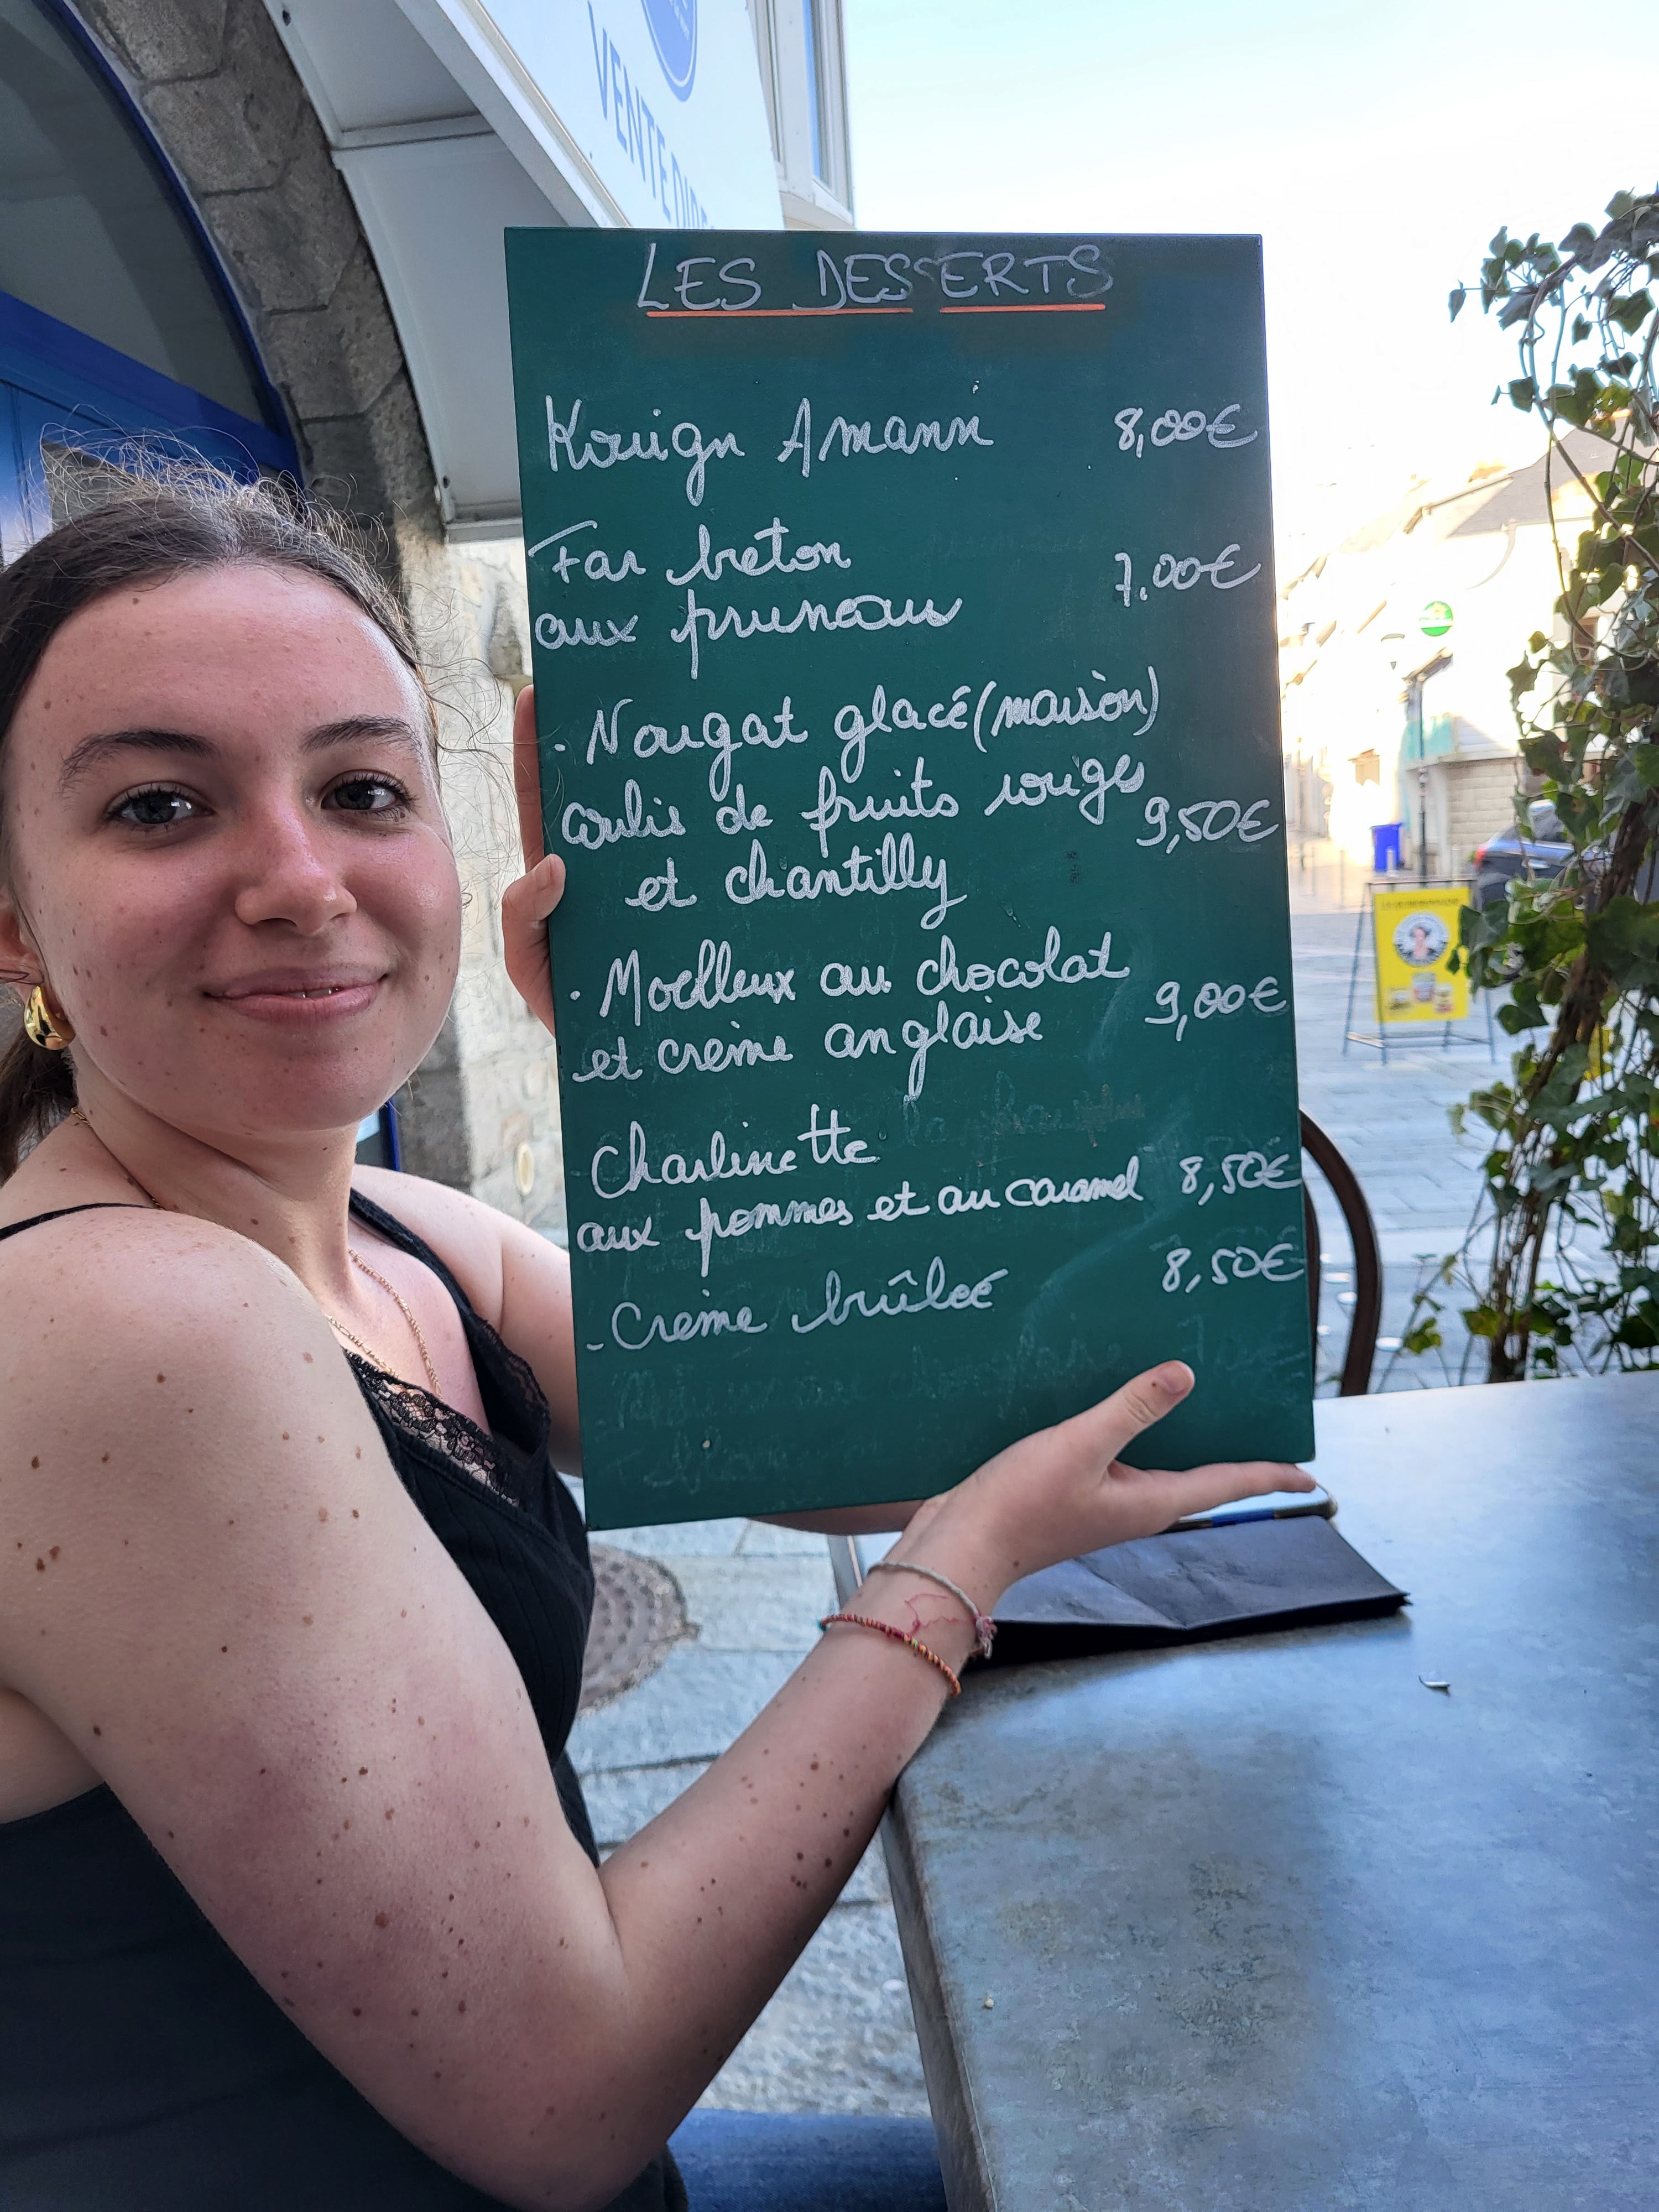 VENTE DIRE
LES DESSERTS
Kouign Amann 8,00€
Far breton
aux pruneaux 7.00€
. Nougat glacé (maison)
coulis de fruits rouges
et chantilly 9,50€
. Moelleux au chocolat
et crème anglaise 9,00€
Charlinette
aux pommes et au caramel 8,50€
- Crème brûlée 8,50€